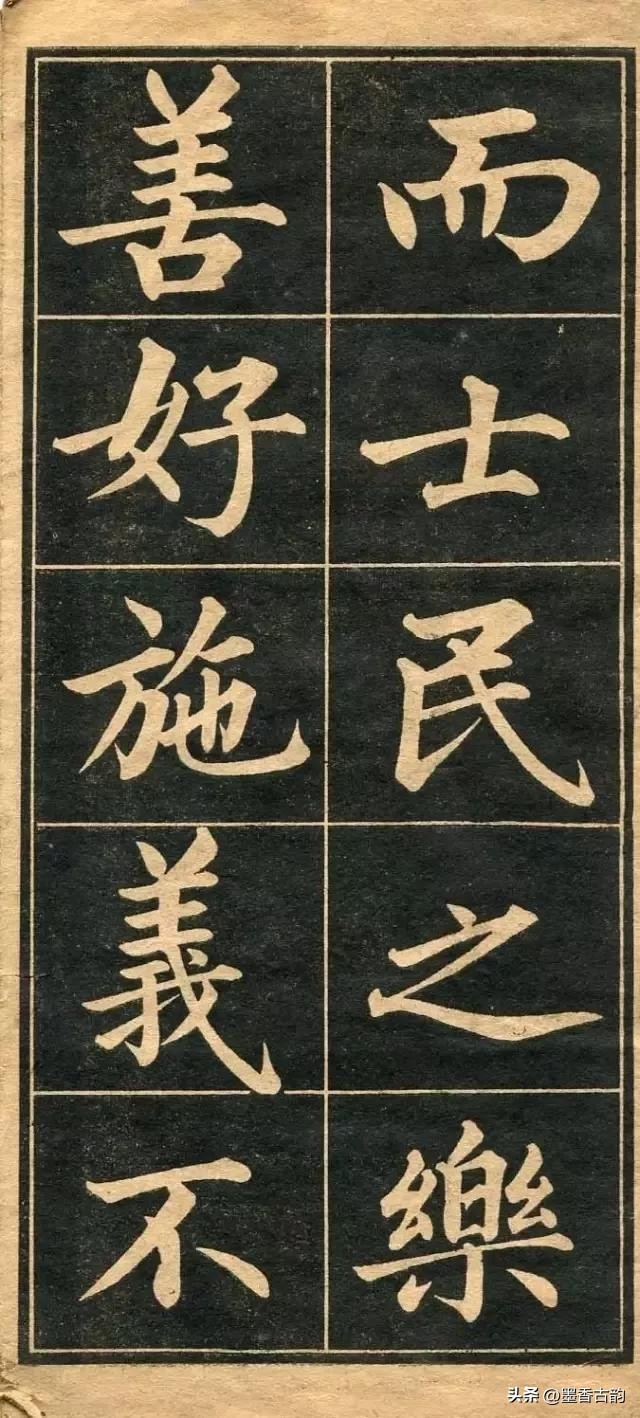 而士民之樂
善好施義不
头条 @墨香古韵